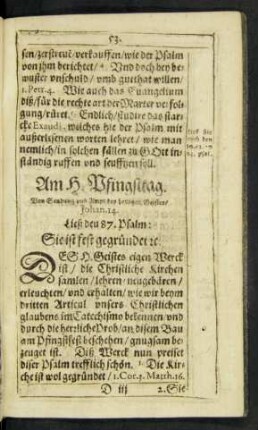 53.
sen/zerstreut/verkauffen/wie der Psalm
von ihm berichtet/ 4. Und doch bey be-
wuster unschuld/ umb guthat willen/
1. Petr. 4. Wie auch das Euangelium
diß/ für die rechte art der Marter verfol-
gung/ rüret. Endlich/ studire das star-
cke Exaudi, welches hie der Psalm mit
außerlesenen worten lehret/ wie man
nemlich in solchen fällen zu Gott in-
ständig ruffen und seufftzen soll.
Am H. Pfingstag.
Von Sendung und Ampt des heiligen Geistes/
Johan. 14.
Ließ den 87. Psalm:
Sie ist fest gegründet ꝛc.
DES H. Geistes eigen Werck
ist/ die Christliche Kirchen
samlen/ lehren/ neugebären/
erleuchten/ und erhalten/ wie wir beym
dritten Artical unsers Christlichen
glaubens im Catechismo bekennen und
durch die herrliche Prob/ an disem Bau
am Pfingstfest beschehen/ gnugsam be-
zeuget ist. Diß Werck nun preiset
diser Psalm trefflich schön. 1. Die Kir-
che ist wol gegründet/ 1. Cor. 3. Matth. 16.
D iij
2. Sie